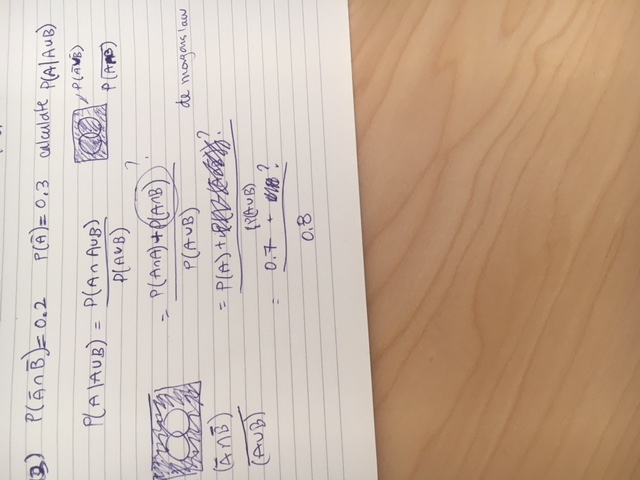 3) P(Ā∩B̄)=0.2 P(Ā)=0.3 calculate P(A/A∪B)
P(A/A∪B) = P(A∩A∪B) / P(A∪B)
= P(A∩A)+P(A∩B) / P(A∪B) ?
de morgans law
(Ā∩B̄)
= P(A)+ ? / P(A∪B)
(A∪B)
= 0.7 + ? / 0.8